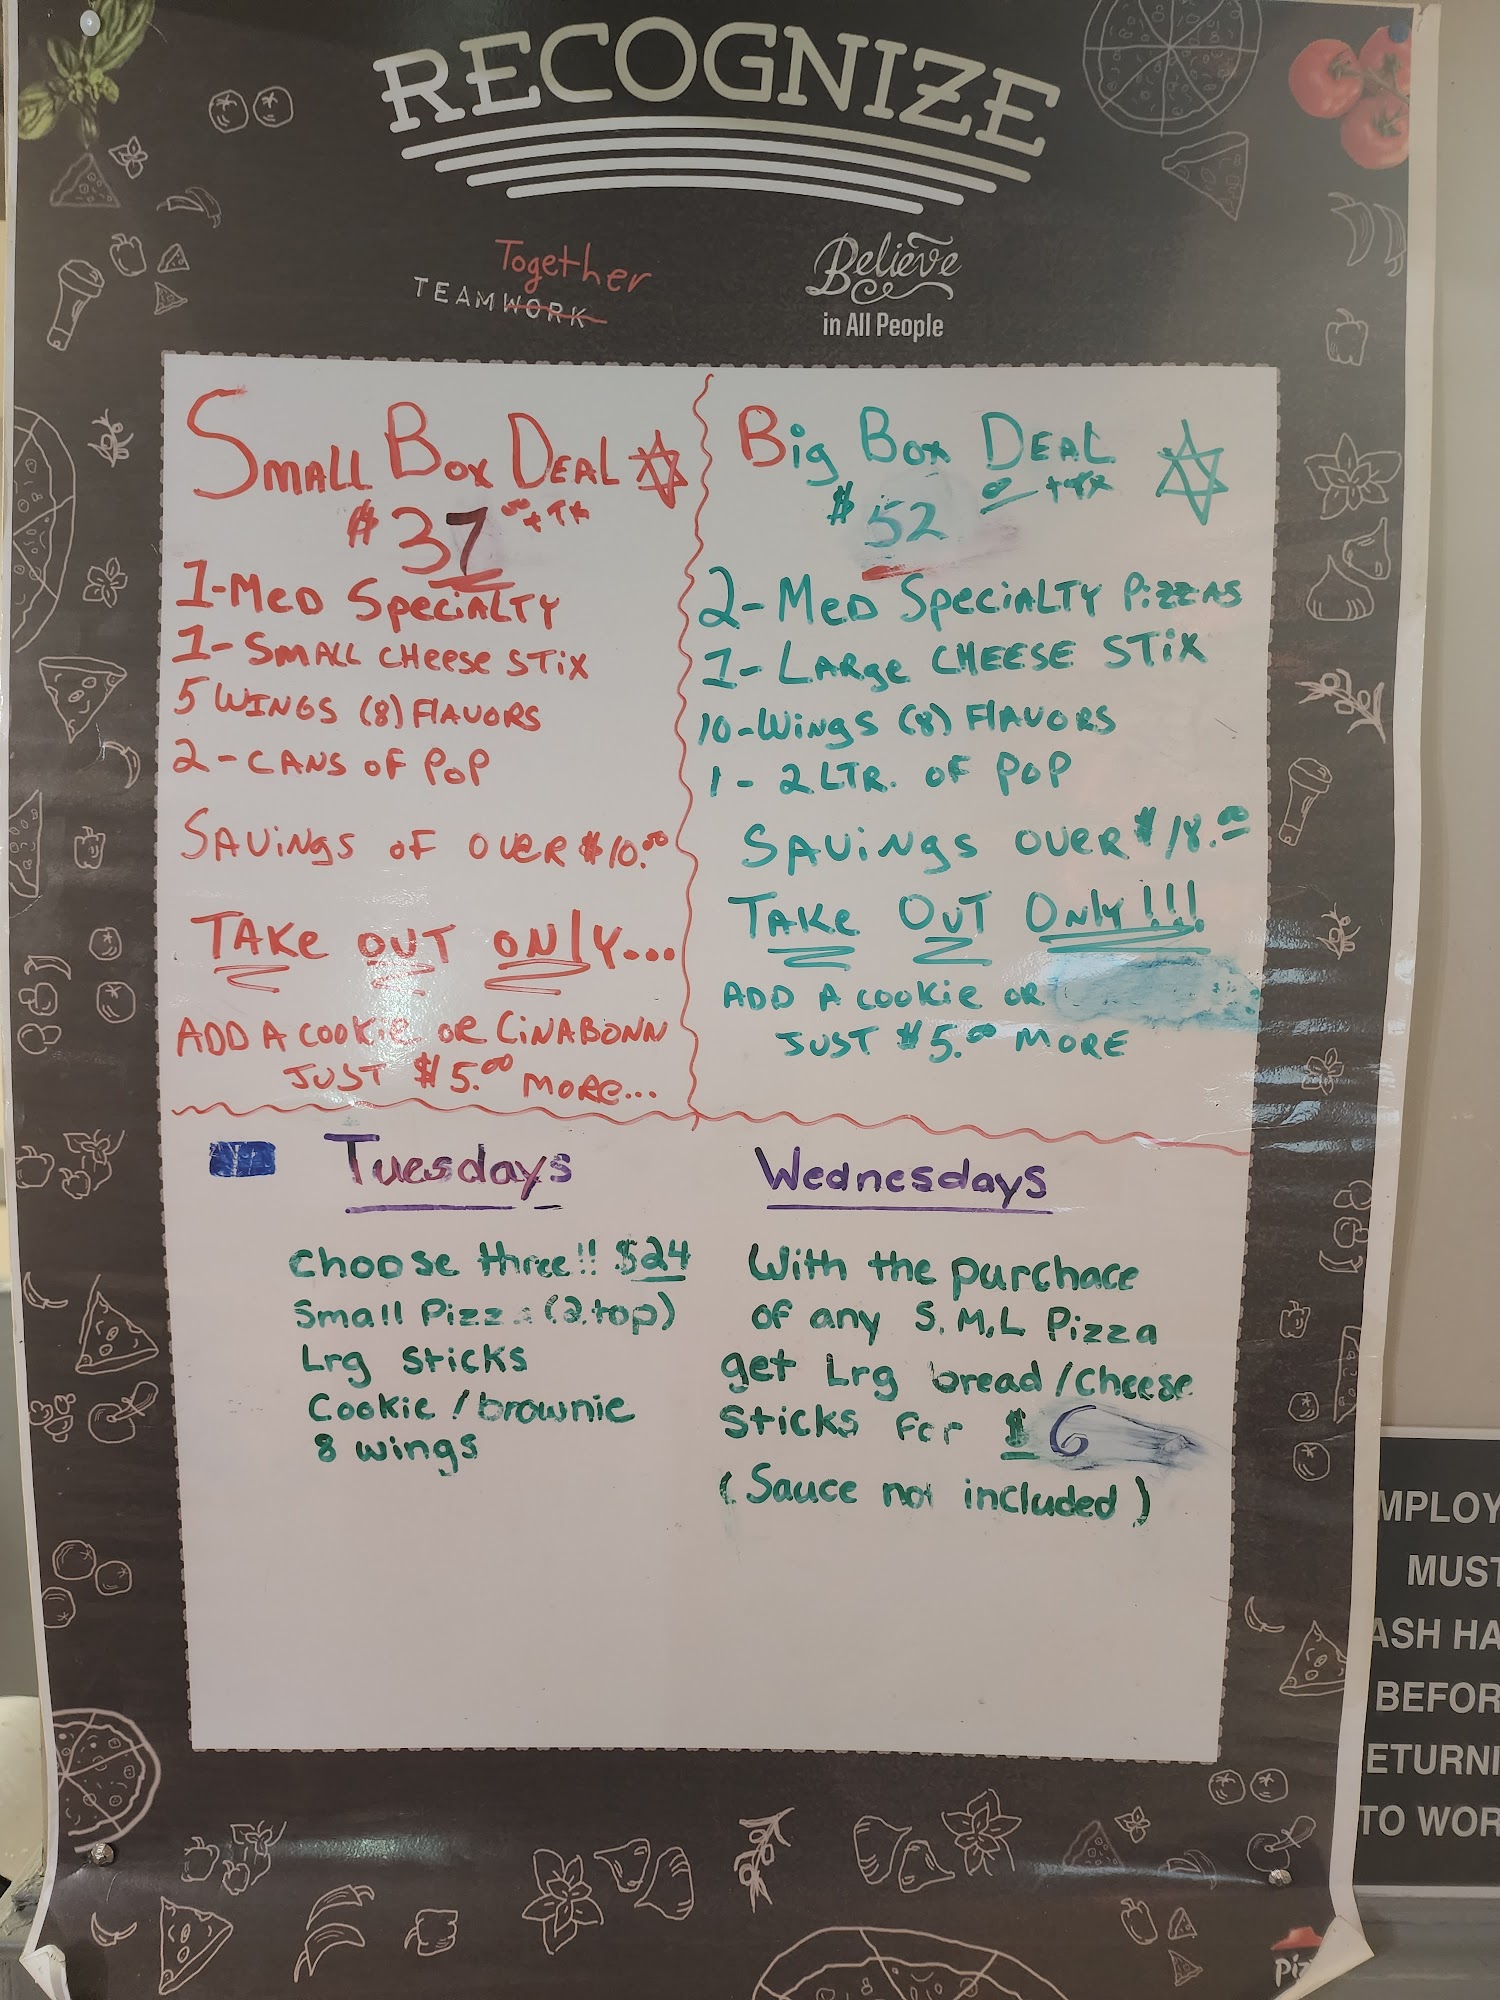 RECOGNIZE
Together
TEAMWORK
Believe
in All People
SMALL BOX DEAL
$37.00 + TX
1-MED SPECIALTY
1-SMALL CHEESE STIX
5 WINGS (8) FLAVORS
2-CANS OF POP
SAVINGS OF OVER $10.00
TAKE OUT ONLY...
ADD A COOKIE OR CINABONN
JUST $5.00 MORE...
BIG BOX DEAL
$52 + TX
2-MED SPECIALTY PIZZAS
1-LARGE CHEESE STIX
10-WINGS (8) FLAVORS
1-2LTR. OF POP
SAVINGS OVER $18.00
TAKE OUT ONLY!!!
ADD A COOKIE OR
JUST $5.00 MORE
Tuesdays
Choose three!! $24
Small Pizza (2.top)
Lrg Sticks
Cookie/brownie
8 wings
Wednesdays
With the purchace
of any S,M,L Pizza
get Lrg bread/Cheese
Sticks For $6
(Sauce not included)
MPLOY
MUST
ASH HA
BEFOR
ETURNI
TO WOR